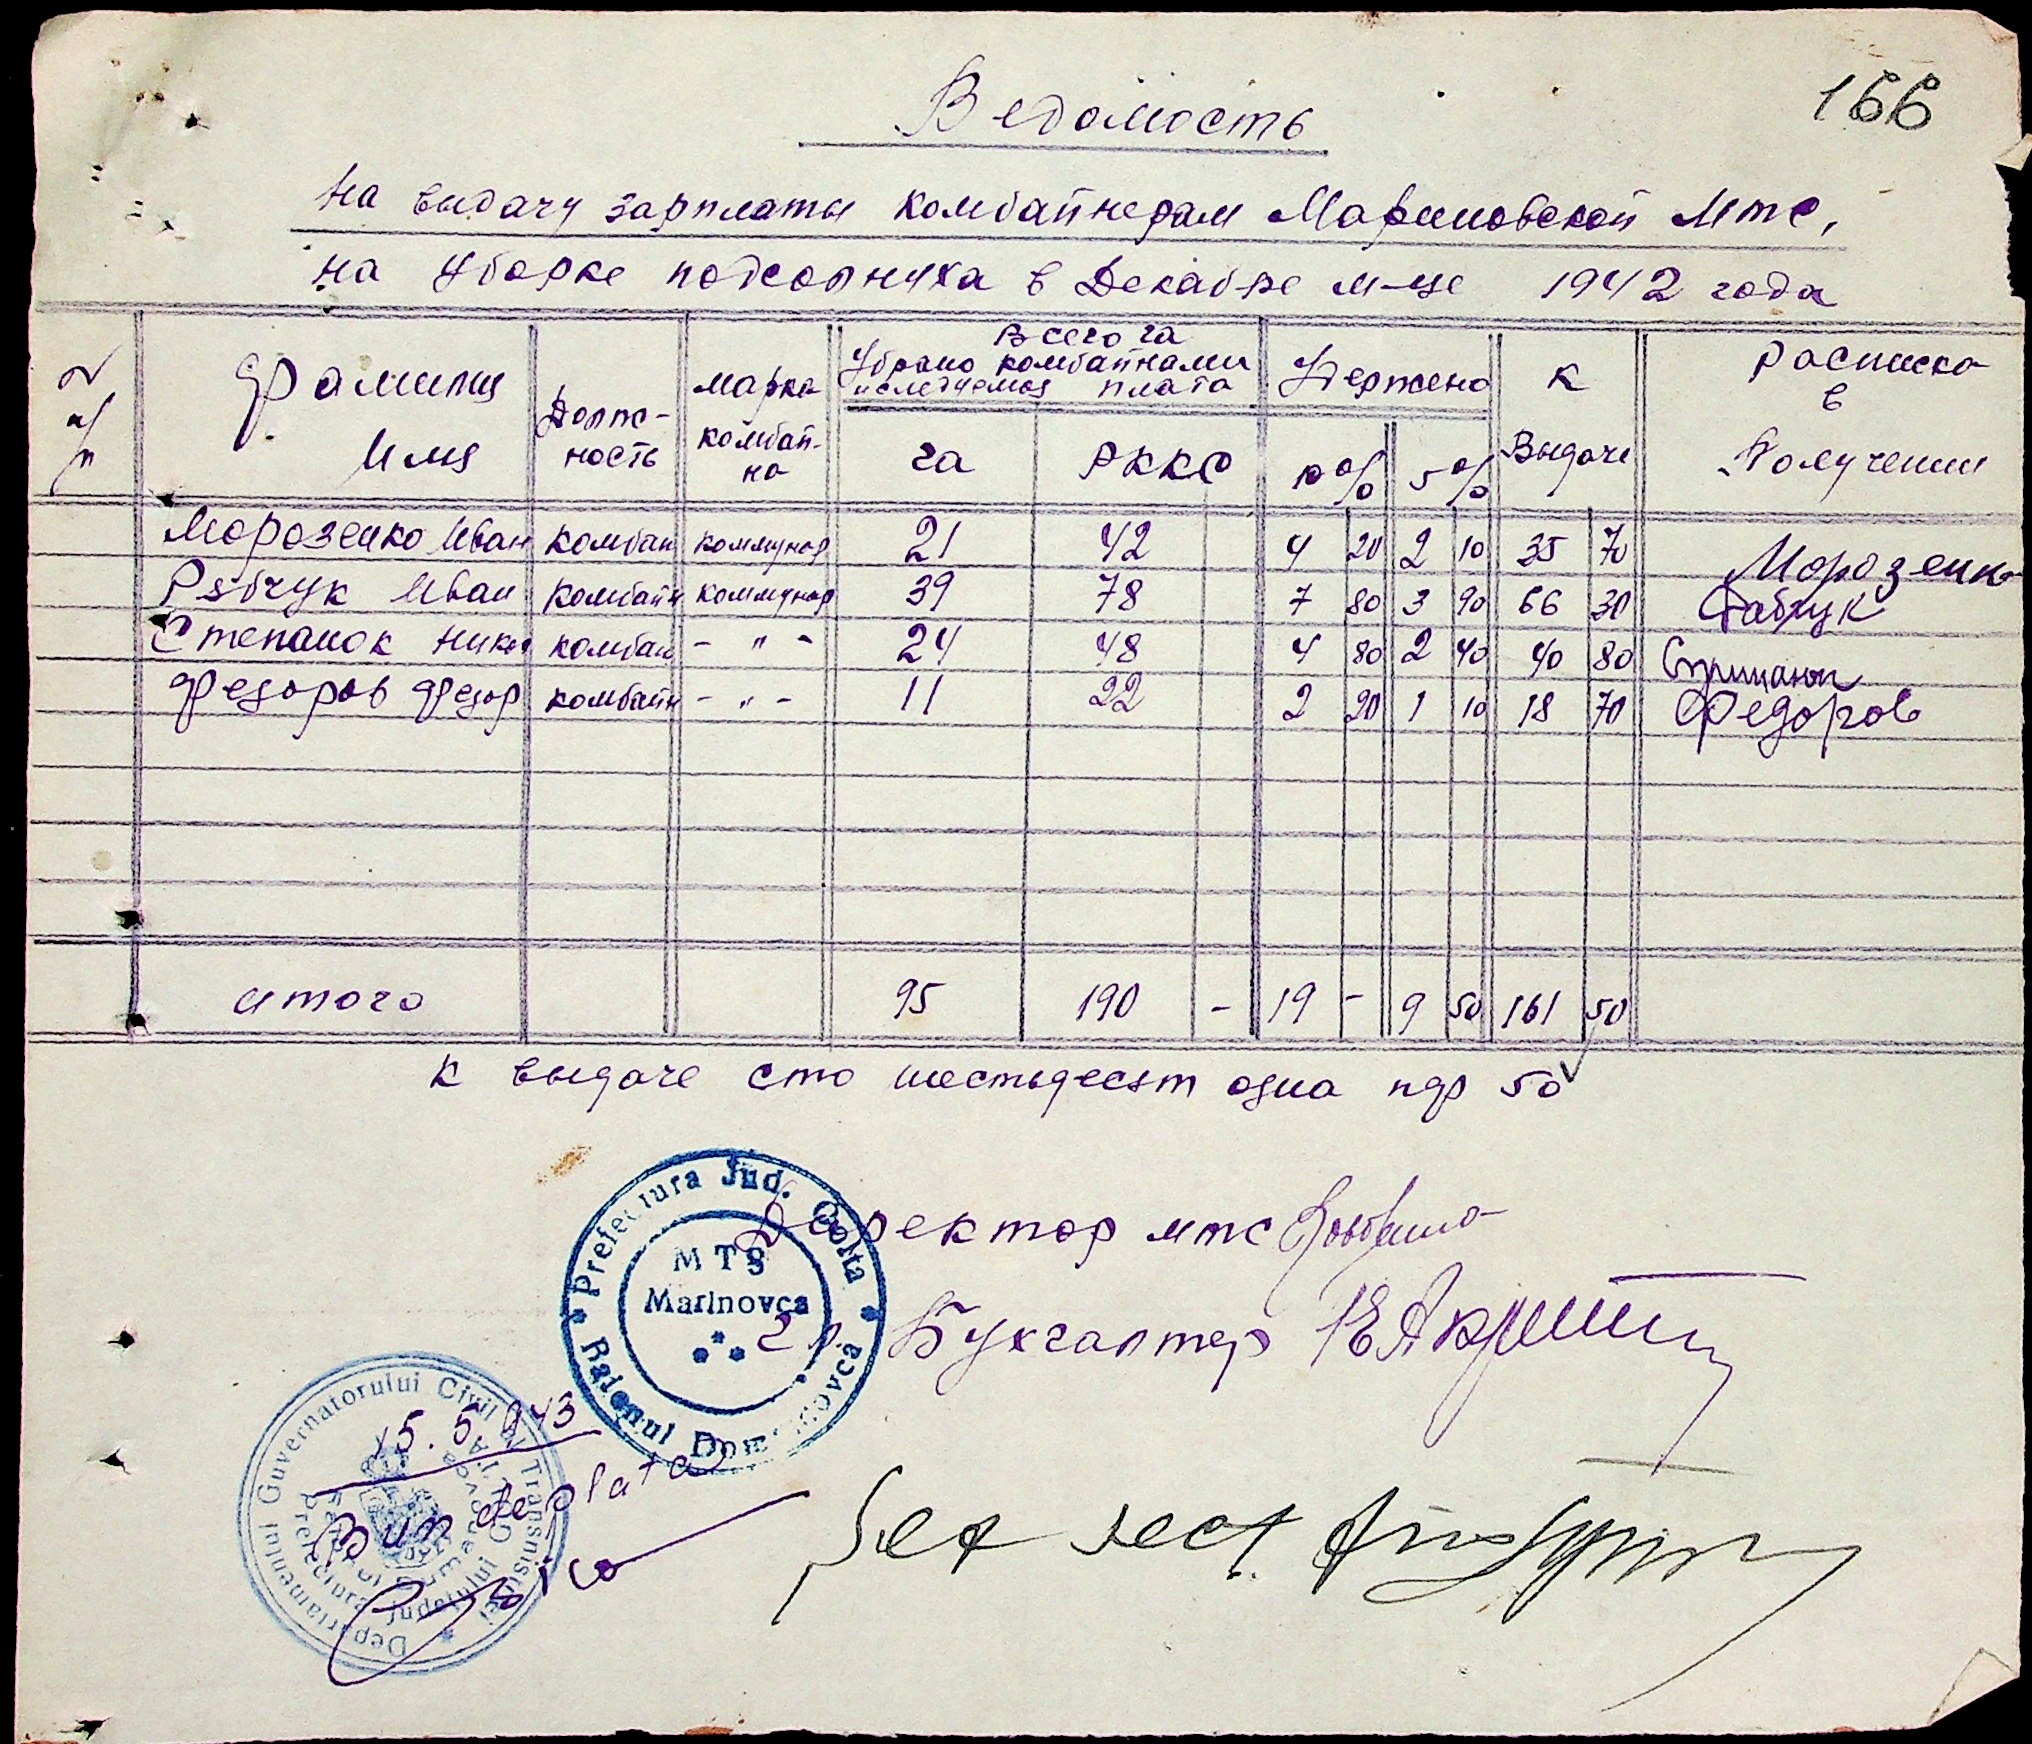 166
Ведомость
на выдачу зарплаты комбайнерам Мариновской Мтс,
на уборке подсолнуха в Декабре м-це 1942 года
N п/п | Фамилия Имя | Долж-ность | марка комбай-на | Всего га Убрано комбайнами и следуемая плата | Удержено | К Выдаче | Расписка в Получении
га | РККС | 10% | 5%
Морозенко Иван | комбай | коммунар | 21 | 42 | 4 20 | 2 10 | 35 70 | Морозенко
Рябчук Иван | комбайн | коммунар | 39 | 78 | 7 80 | 3 90 | 66 30 | Рабчук
Степанюк Ник | комбай | - " - | 24 | 48 | 4 80 | 2 40 | 40 80
Федоров Федор | комбайн | - " - | 11 | 22 | 2 20 | 1 10 | 18 70 | Федоров
итого | 95 | 190 - | 19 - | 9 50 | 161 50
К выдаче сто шестьдесят одна 50
Prefectura Jud. Golta
Raionul Domanovca
MTS
Marinovca
Директор мтс
Гл. Бухгалтер
Departamentul Guvernatorului Civil al Transnistriei
Prefectura Judeţului Golta
15.5.943
Bun de plata
Șef sect.